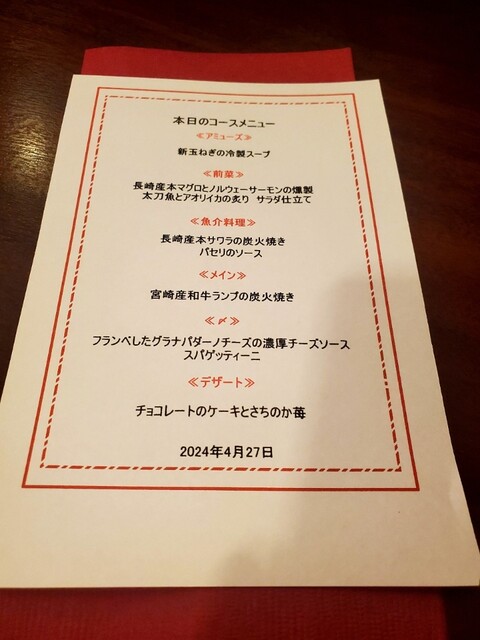 本日のコースメニュー
≪アミューズ≫
新玉ねぎの冷製スープ
≪前菜≫
長崎産本マグロとノルウェーサーモンの燻製
太刀魚とアオリイカの炙り サラダ仕立て
≪魚介料理≫
長崎産本サワラの炭火焼き
パセリのソース
≪メイン≫
宮崎産和牛ランプの炭火焼き
≪〆≫
フランベしたグラナパダーノチーズの濃厚チーズソース
スパゲッティーニ
≪デザート≫
チョコレートのケーキとさちのか苺
2024年4月27日